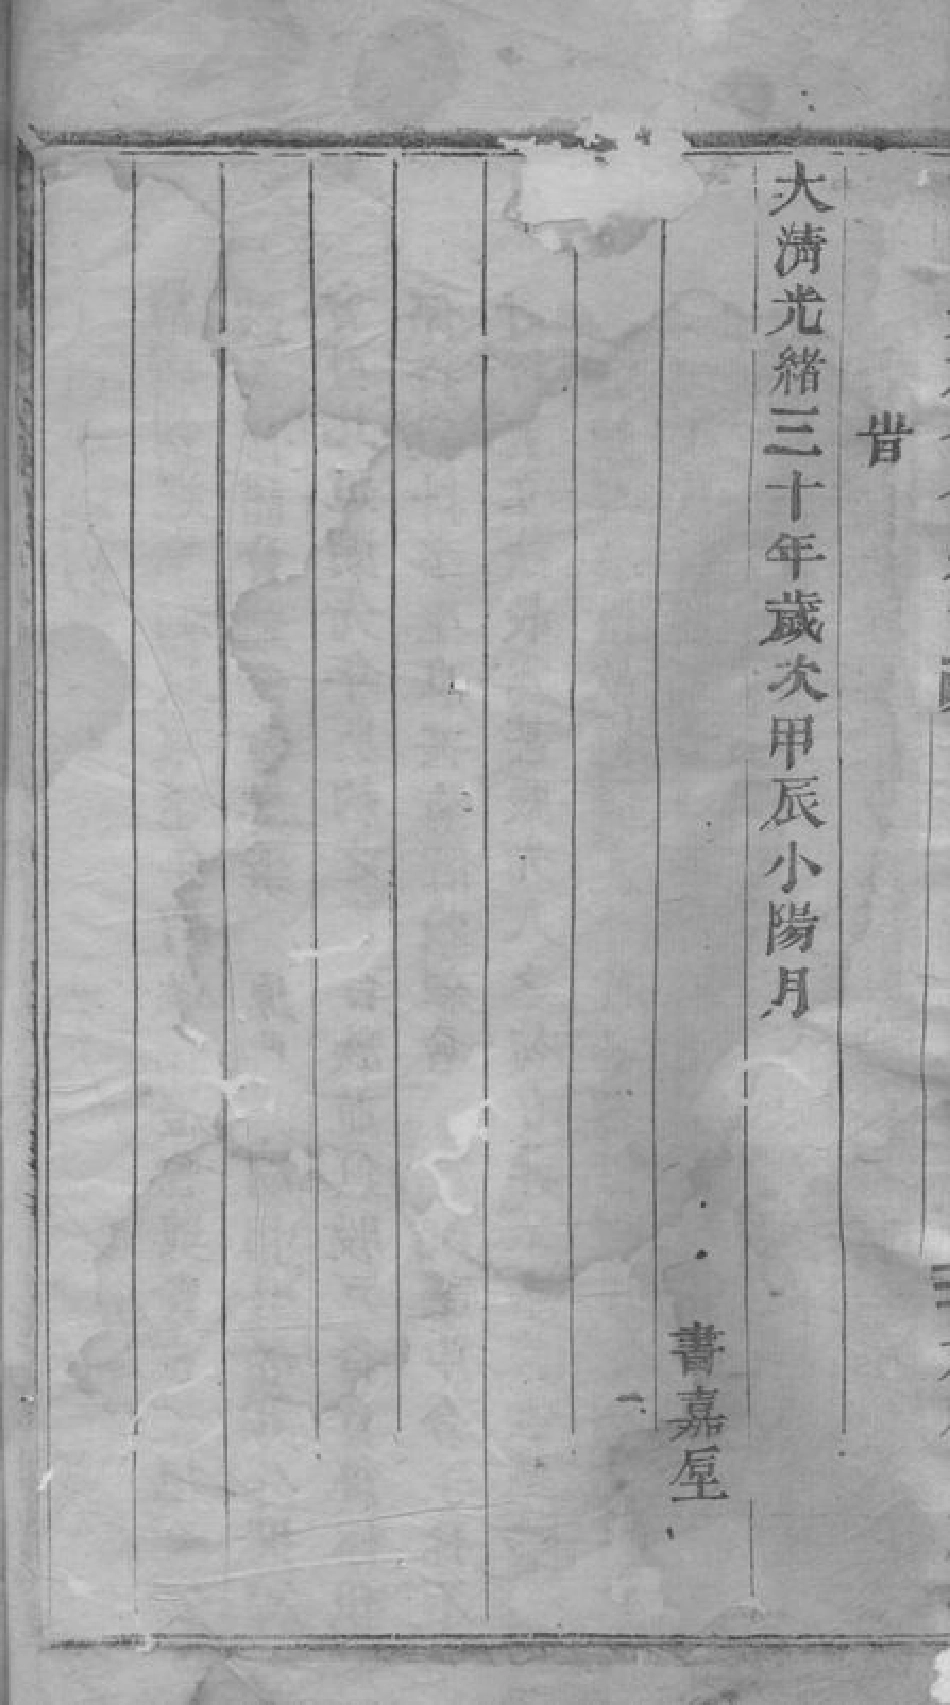 旹
大清光緒三十年歲次甲辰小陽月
書嘉垕